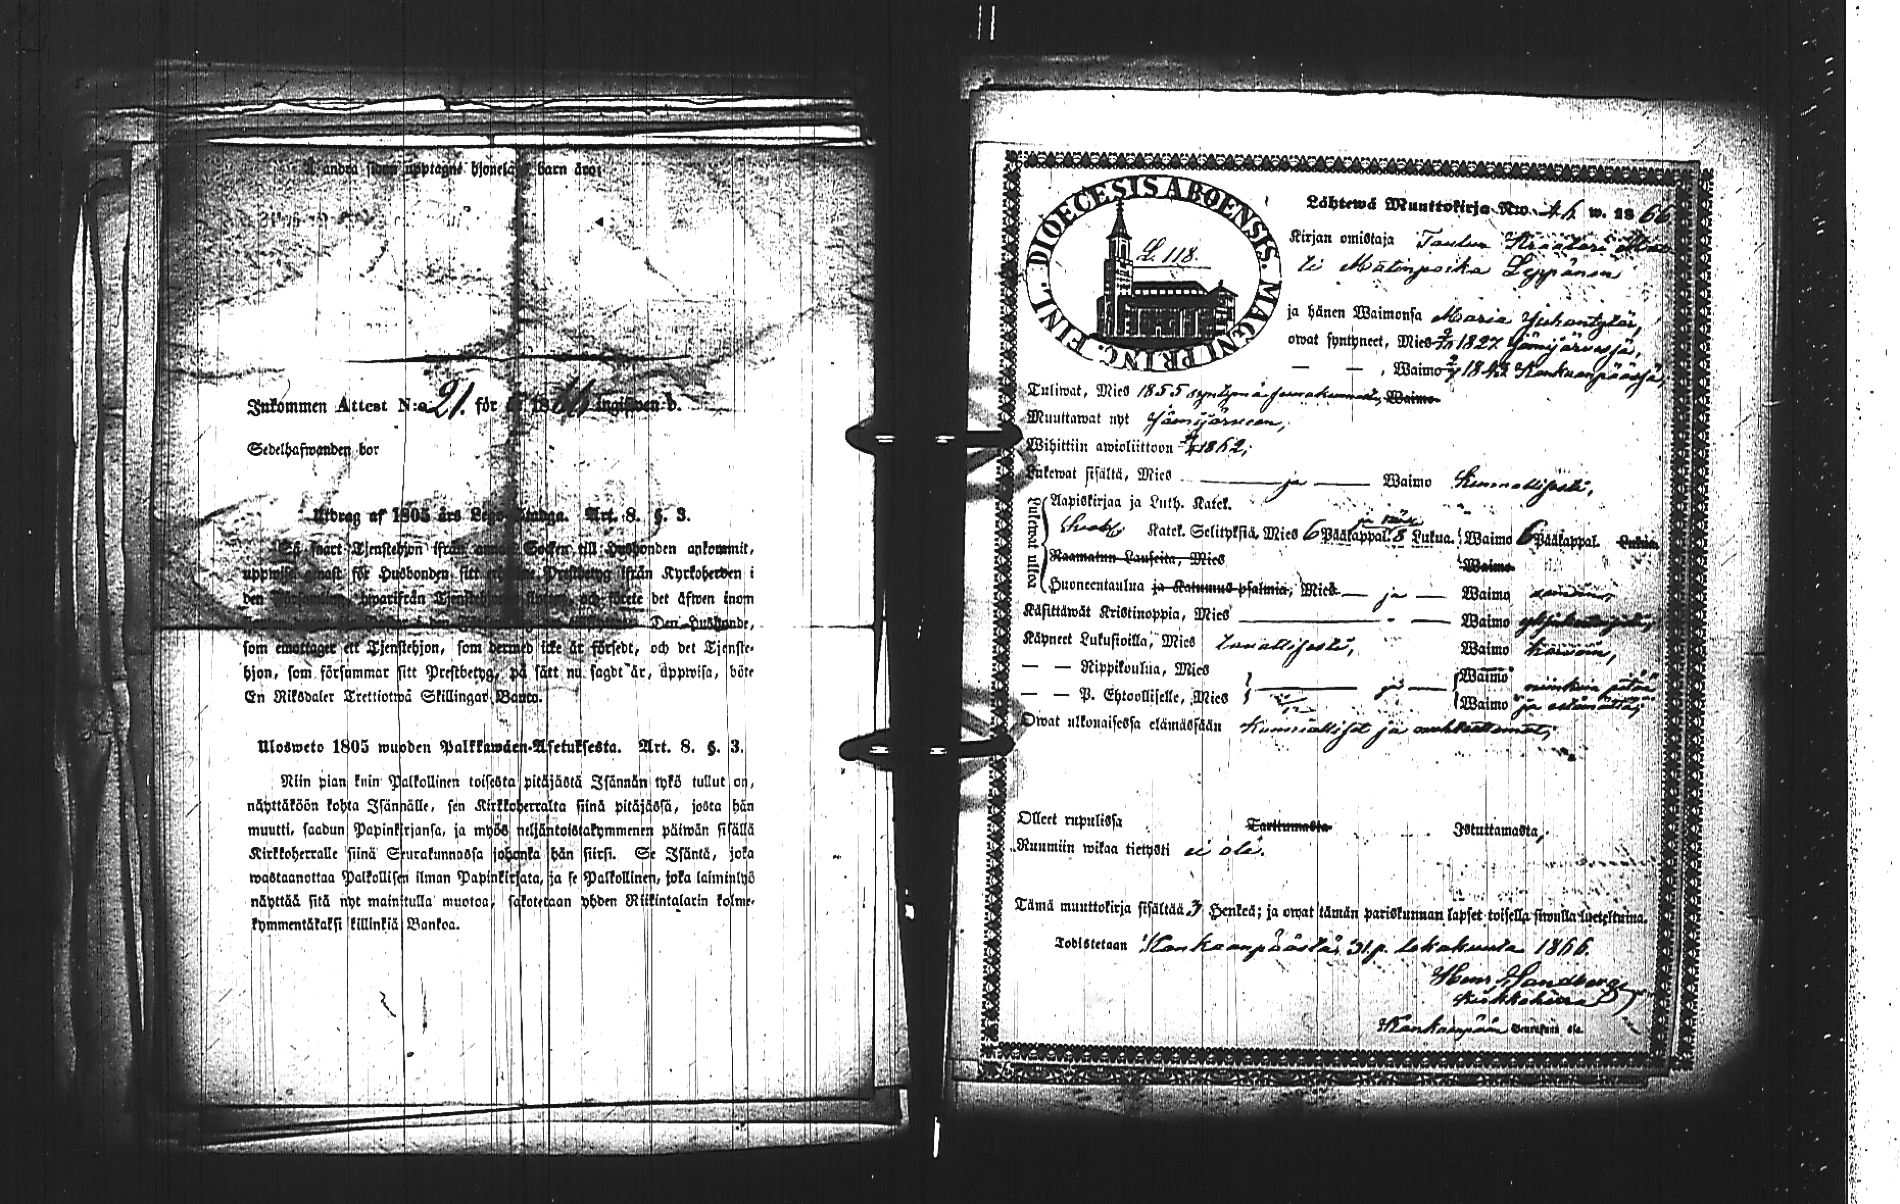 Å andra sidan upptagne hjonelags barn äro:
Inkommen Attest N:o 21. för 1866 ingifwen b.
Sedelhafwanden bor
Utdrag af 1805 års Lego-Stadga. Art. 8. §. 3.
Så snart Tjenstehjon ifrån annan Socken till Husbonden ankommit,
uppwise genast för Husbonden sitt Prestbetyg ifrån Kyrkoherden i
den Församling, hwarifrån Tjenstehjonet flyttat, och förete det äfwen inom
Den Husbonde,
som emottager ett Tjenstehjon, som dermed icke är försedt, och det Tjenste-
hjon, som försummar sitt Prestbetyg, på sätt nu sagdt är, uppwisa, böte
En Riksdaler Trettiotwå Skillingar Banco.
Ulosweto 1805 wuoden Palkkawäen-Asetuksesta. Art. 8. §. 3.
Niin pian kuin Palkollinen toisesta pitäjästä Isännän tykö tullut on,
näyttäköön kohta Isännälle, sen Kirkkoherralta siinä pitäjässä, josta hän
muutti, saadun Papinkirjansa, ja myös neljäntoistakymmenen päiwän sisällä
Kirkkoherralle siinä Seurakunnassa johonka hän siirsi. Se Isäntä, joka
wastaanottaa Palkollisen ilman Papinkirjata, ja se Palkollinen, joka laiminlyö
näyttää sitä nyt mainitulla muotoa, sakotetaan yhden Riikintalarin kolme-
kymmentäkaksi killinkiä Bankoa.
DIOECESIS ABOENSIS. MAGNI PRINC. FINL.
L. 118.
Lähtewä Muuttokirja N:o 46 w. 1866
Kirjan omistaja Mat-
ti Matinpoika Leppänen
ja hänen Waimonsa Maria Juhontytär,
owat syntyneet, Mies 1827 Jämijärwessä,
— — , Waimo 1842 Kankaanpäässä,
Tuliwat, Mies 1855 syntymä seurakunnasta, Waimo
Muuttawat nyt Jämijärween,
Wihittiin awioliittoon 1862,
Lukewat sisältä, Mies — ja — Waimo Kunnollisesti,
Lukewat ulkoa
Aapiskirjaa ja Luth. Katek.
Katek. Selityksiä, Mies 6 Pääkappal. 8 Lukua. Waimo 6 Pääkappal. Lukua.
Raamatun Lauseita, Mies Waimo
Huoneentaulua ja Katumus psalmia, Mies — ja — Waimo
Käsittäwät Kristinoppia, Mies — Waimo
Käyneet Lukusioilla, Mies Waimo harwoin,
— — Rippikoulua, Mies Waimo
— — P. Ehtoollisella, Mies — ja — Waimo
Owat ulkonaisessa elämässään Kunnialliset ja
Olleet rupulissa Tarttumasta Istuttamasta,
Ruumiin wikaa tietysti ei ole.
Tämä muuttokirja sisältää 3 Henkeä; ja owat tämän pariskunnan lapset toisella siwulla lueteltuina.
Todistetaan Kankaanpäästä, 31 p. lokakuuta 1866.
Sandberg
Kirkkoherra
Kankaanpään Seurakunnassa.